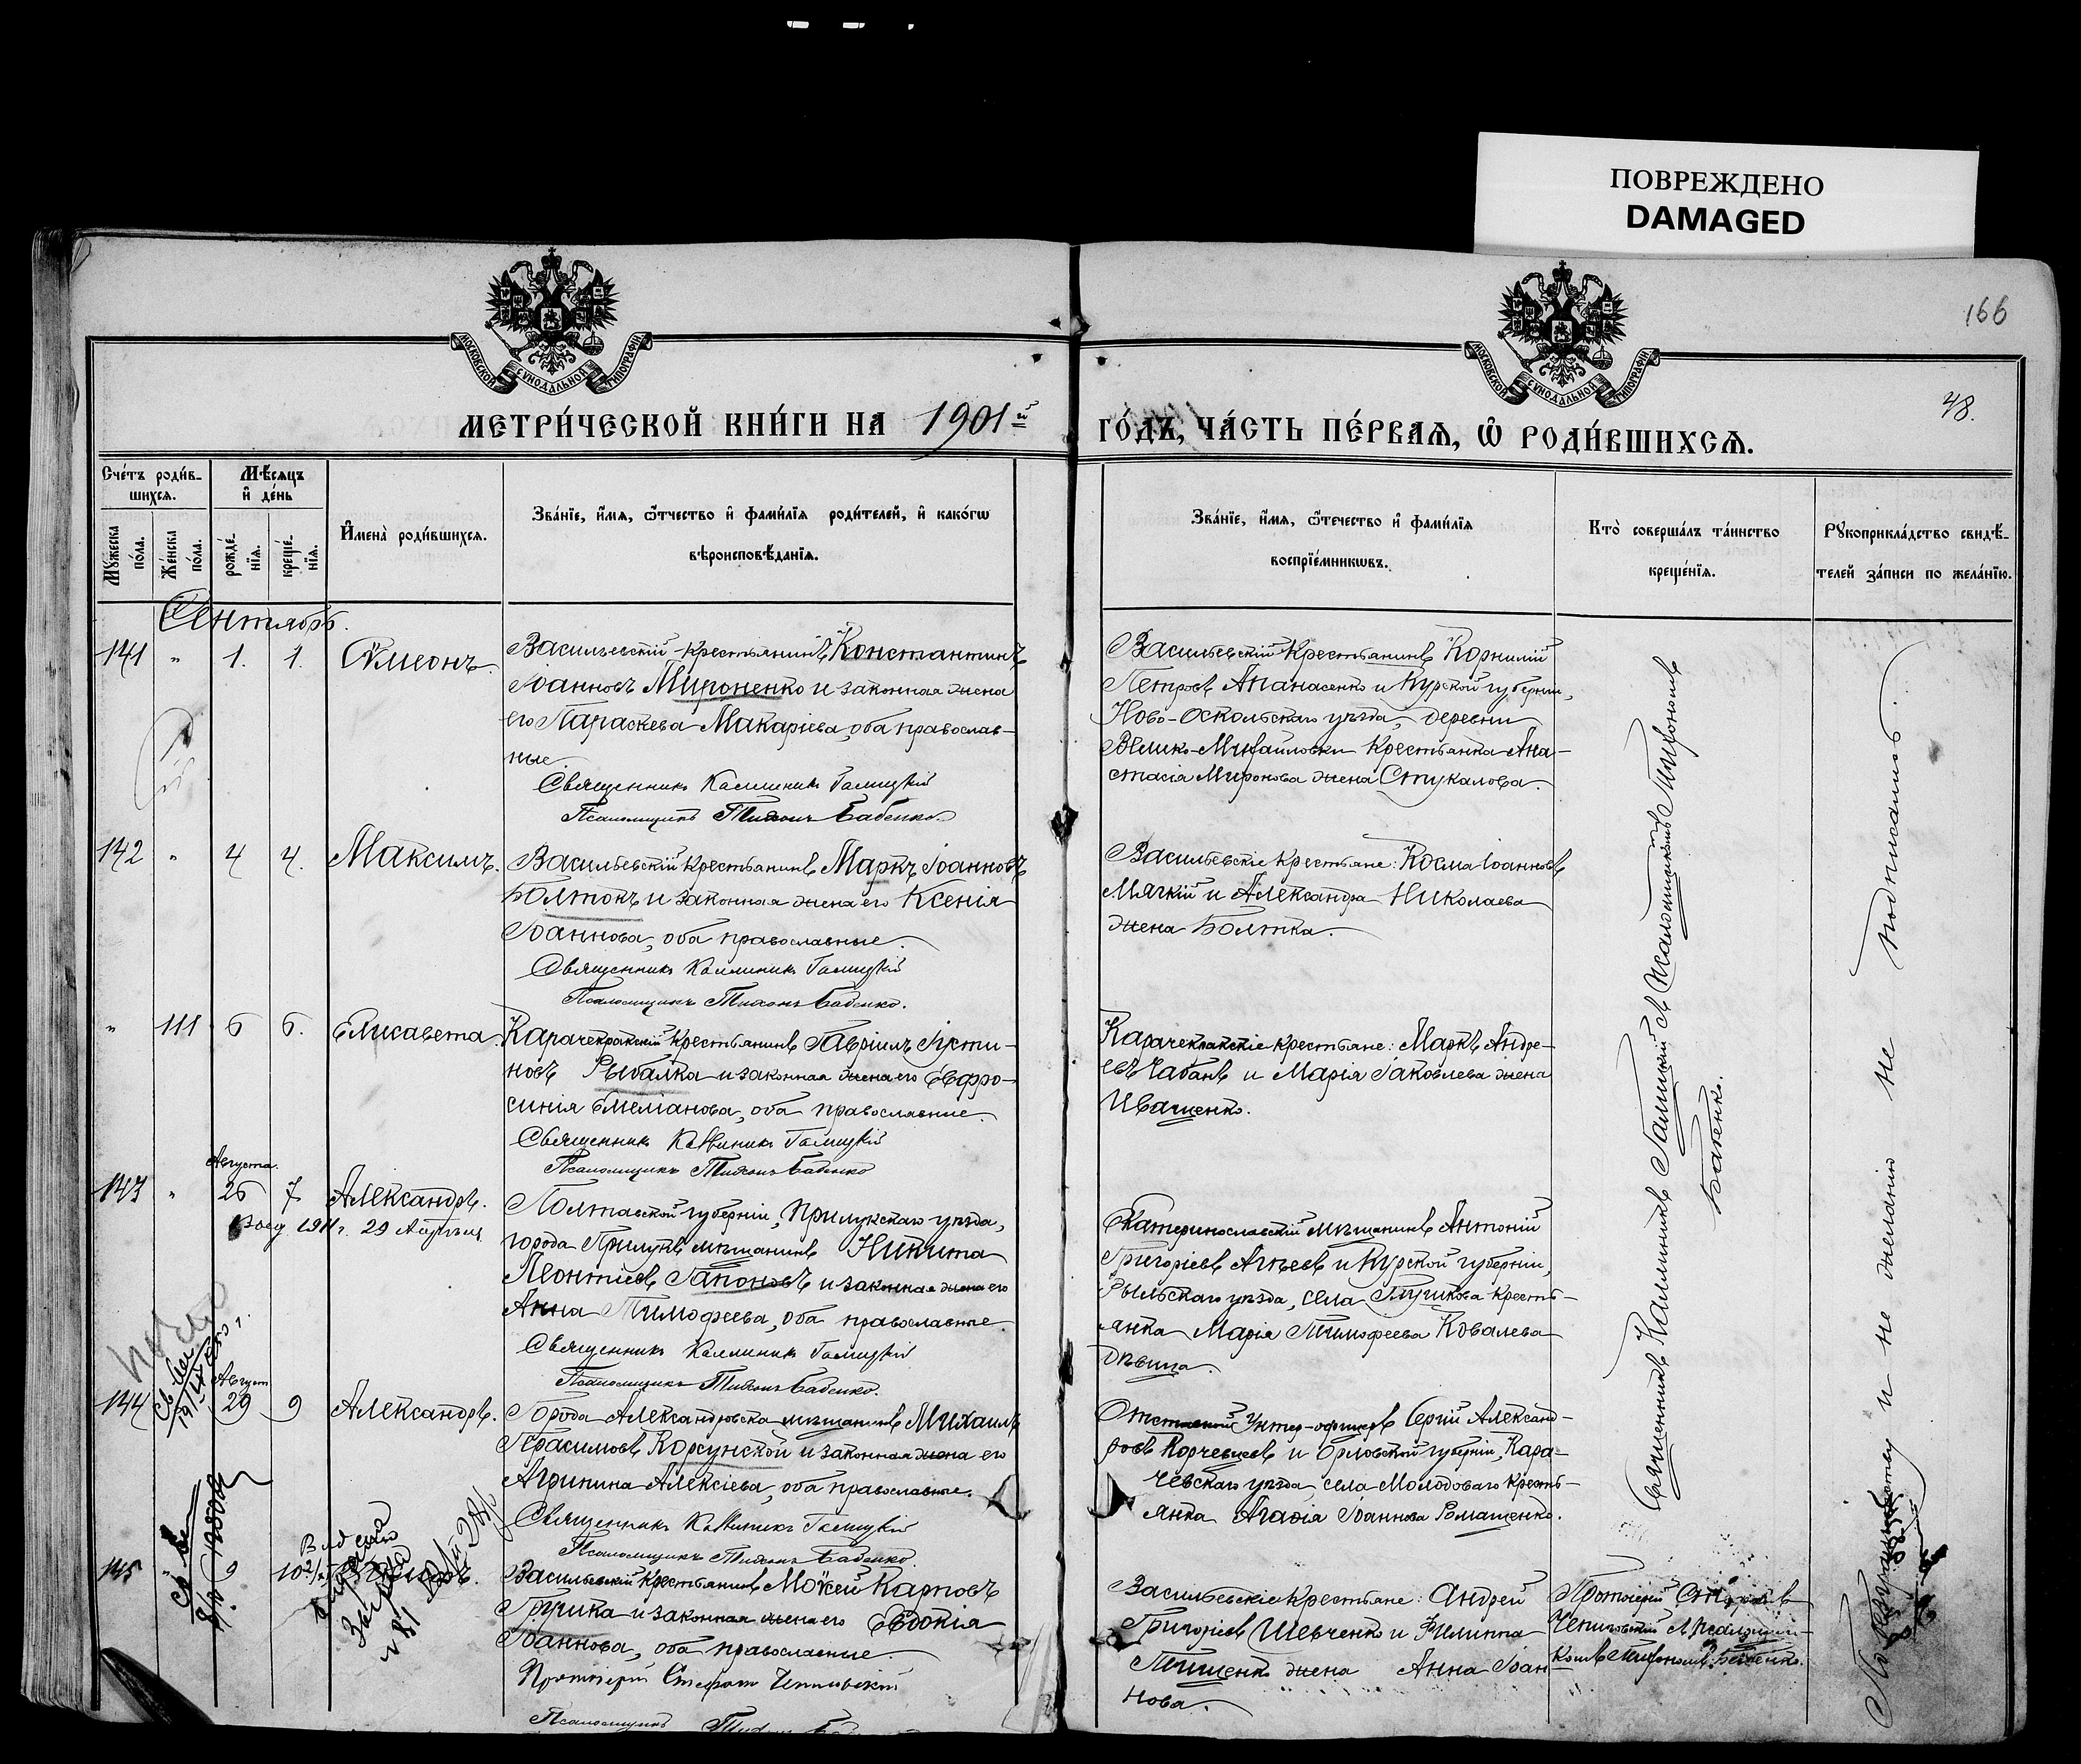 ПОВРЕЖДЕНО
DAMAGED
166
МОСКОВСКОЙ СѴНОДАЛЬНОЙ ТИПОГРАФІИ
МОСКОВСКОЙ СѴНОДАЛЬНОЙ ТИПОГРАФІИ
48.
МЕТРИ́ЧЕСКОЙ КНИ́ГИ НА 1901й ГО́ДЪ, ЧА́СТЬ ПЕ́РВАѦ, Ѽ РОДИ́ВШИХСѦ.
Сче́тъ роди́в-
шихсѧ.
Мꙋжеска
по́ла.
Же́нска
по́ла.
Мѣ́сѧцъ
и҆ де́нь
рожде́-
нїѧ.
креще́-
нїѧ.
И҆мена̀ роди́вшихсѧ.
Зва́нїе, и҆́мѧ, ѻ҆́тчество и҆ фами́лїѧ роди́телей, и҆ како́гѡ
вѣроисповѣ́данїѧ.
Зва́нїе, и҆́мѧ, ѻ҆те́чество и҆ фами́лїѧ
воспрїе́мникѡвъ.
Кто̀ соверша́лъ та́инство
креще́нїѧ.
Рꙋкоприкла́дство свидѣ́-
телей за́писи по жела́нїю.
Сентябрь.
141 " 1. 1. Сѵмеонъ.
Васильевскій крестьянинъ Константинъ
Іоанновъ Мироненко и законная жена
его Параскева Макаріева, оба православ-
ные.
Священникъ Каллиникъ Галицкій
Псаломщикъ Тихонъ Бабенко.
Васильевскій крестьянинъ Корнилій
Петровъ Апанасенко и Курской губерніи,
Ново-Оскольскаго уѣзда, деревни
Велико-Михайловки крестьянка Ана-
стасія Миронова жена Стукалова.
142 " 4 4. Максимъ.
Васильевскій крестьянинъ Маркъ Іоанновъ
Болтокъ и законная жена его Ксенія
Іоаннова, оба православные.
Священникъ Каллиникъ Галицкій
Псаломщикъ Тихонъ Бабенко.
Васильевскіе крестьяне: Косма Іоанновъ
Мягкій и Александра Николаева
жена Болтка.
" 111 6 6. Елисавета.
Карачекракскій крестьянинъ Гавріилъ Іусти-
новъ Рыбалка и законная жена его Евфро-
синія Емеліанова, оба православные.
Священникъ Каллиникъ Галицкій
Псаломщикъ Тихонъ Бабенко
Карачекракскіе крестьяне: Маркъ Андре-
евъ Чабанъ и Марія Іаковлева жена
Иващенко.
Августа.
143 " 26 7 Александръ.
1911 г. 29
Полтавской губерніи, Прилукскаго уѣзда,
города Прилукъ мѣщанинъ Никита
Леонтіевъ Гапоновъ и законная жена его
Анна Тимофеева, оба православные
Священникъ Каллиникъ Галицкій
Псаломщикъ Тихонъ Бабенко.
Екатеринославскій мѣщанинъ Антоній
Григоріевъ Агѣевъ и Курской губерніи,
Рыльскаго уѣзда, села Глушкова кресть-
янка Марія Тимофеева Ковалева
дѣвица.
Август
144 29 9 Александръ.
Города Александровска мѣщанинъ Михаилъ
Герасимовъ Корсунской и законная жена его
Агрипина Алексіева, оба православные.
Священникъ Каллиникъ Галицкій
Псаломщикъ Тихонъ Бабенко.
Отставной Унтер-офицеръ Сергій Александ-
ровъ Корчевцевъ и Орловской губерніи, Кара-
чевскаго уѣзда, села Молодоваго кресть-
янка Агафія Іоаннова Ромащенко.
145 " 9 10
Васильевскій крестьянинъ Моѵсей Карповъ
и законная жена его Евдокія
Іоаннова, оба православные.
Протоіерей Стефанъ
Псаломщикъ Тихонъ
Васильевскіе крестьяне: Андрей
Григоріевъ Шевченко и Филиппа
Тищенко жена Анна Іоан-
нова.
Протоіерей
съ псаломщи-
комъ Тихономъ Бабенко.
Священникъ Каллиникъ Галицкій съ псаломщикомъ Тихономъ
Бабенко.
и не желанію не подписано.